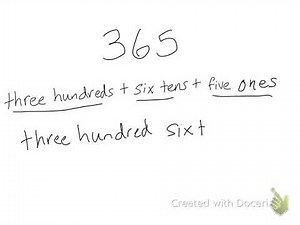 365
three hundreds + six tens + five ones
three hundred sixt
Created with Doceri